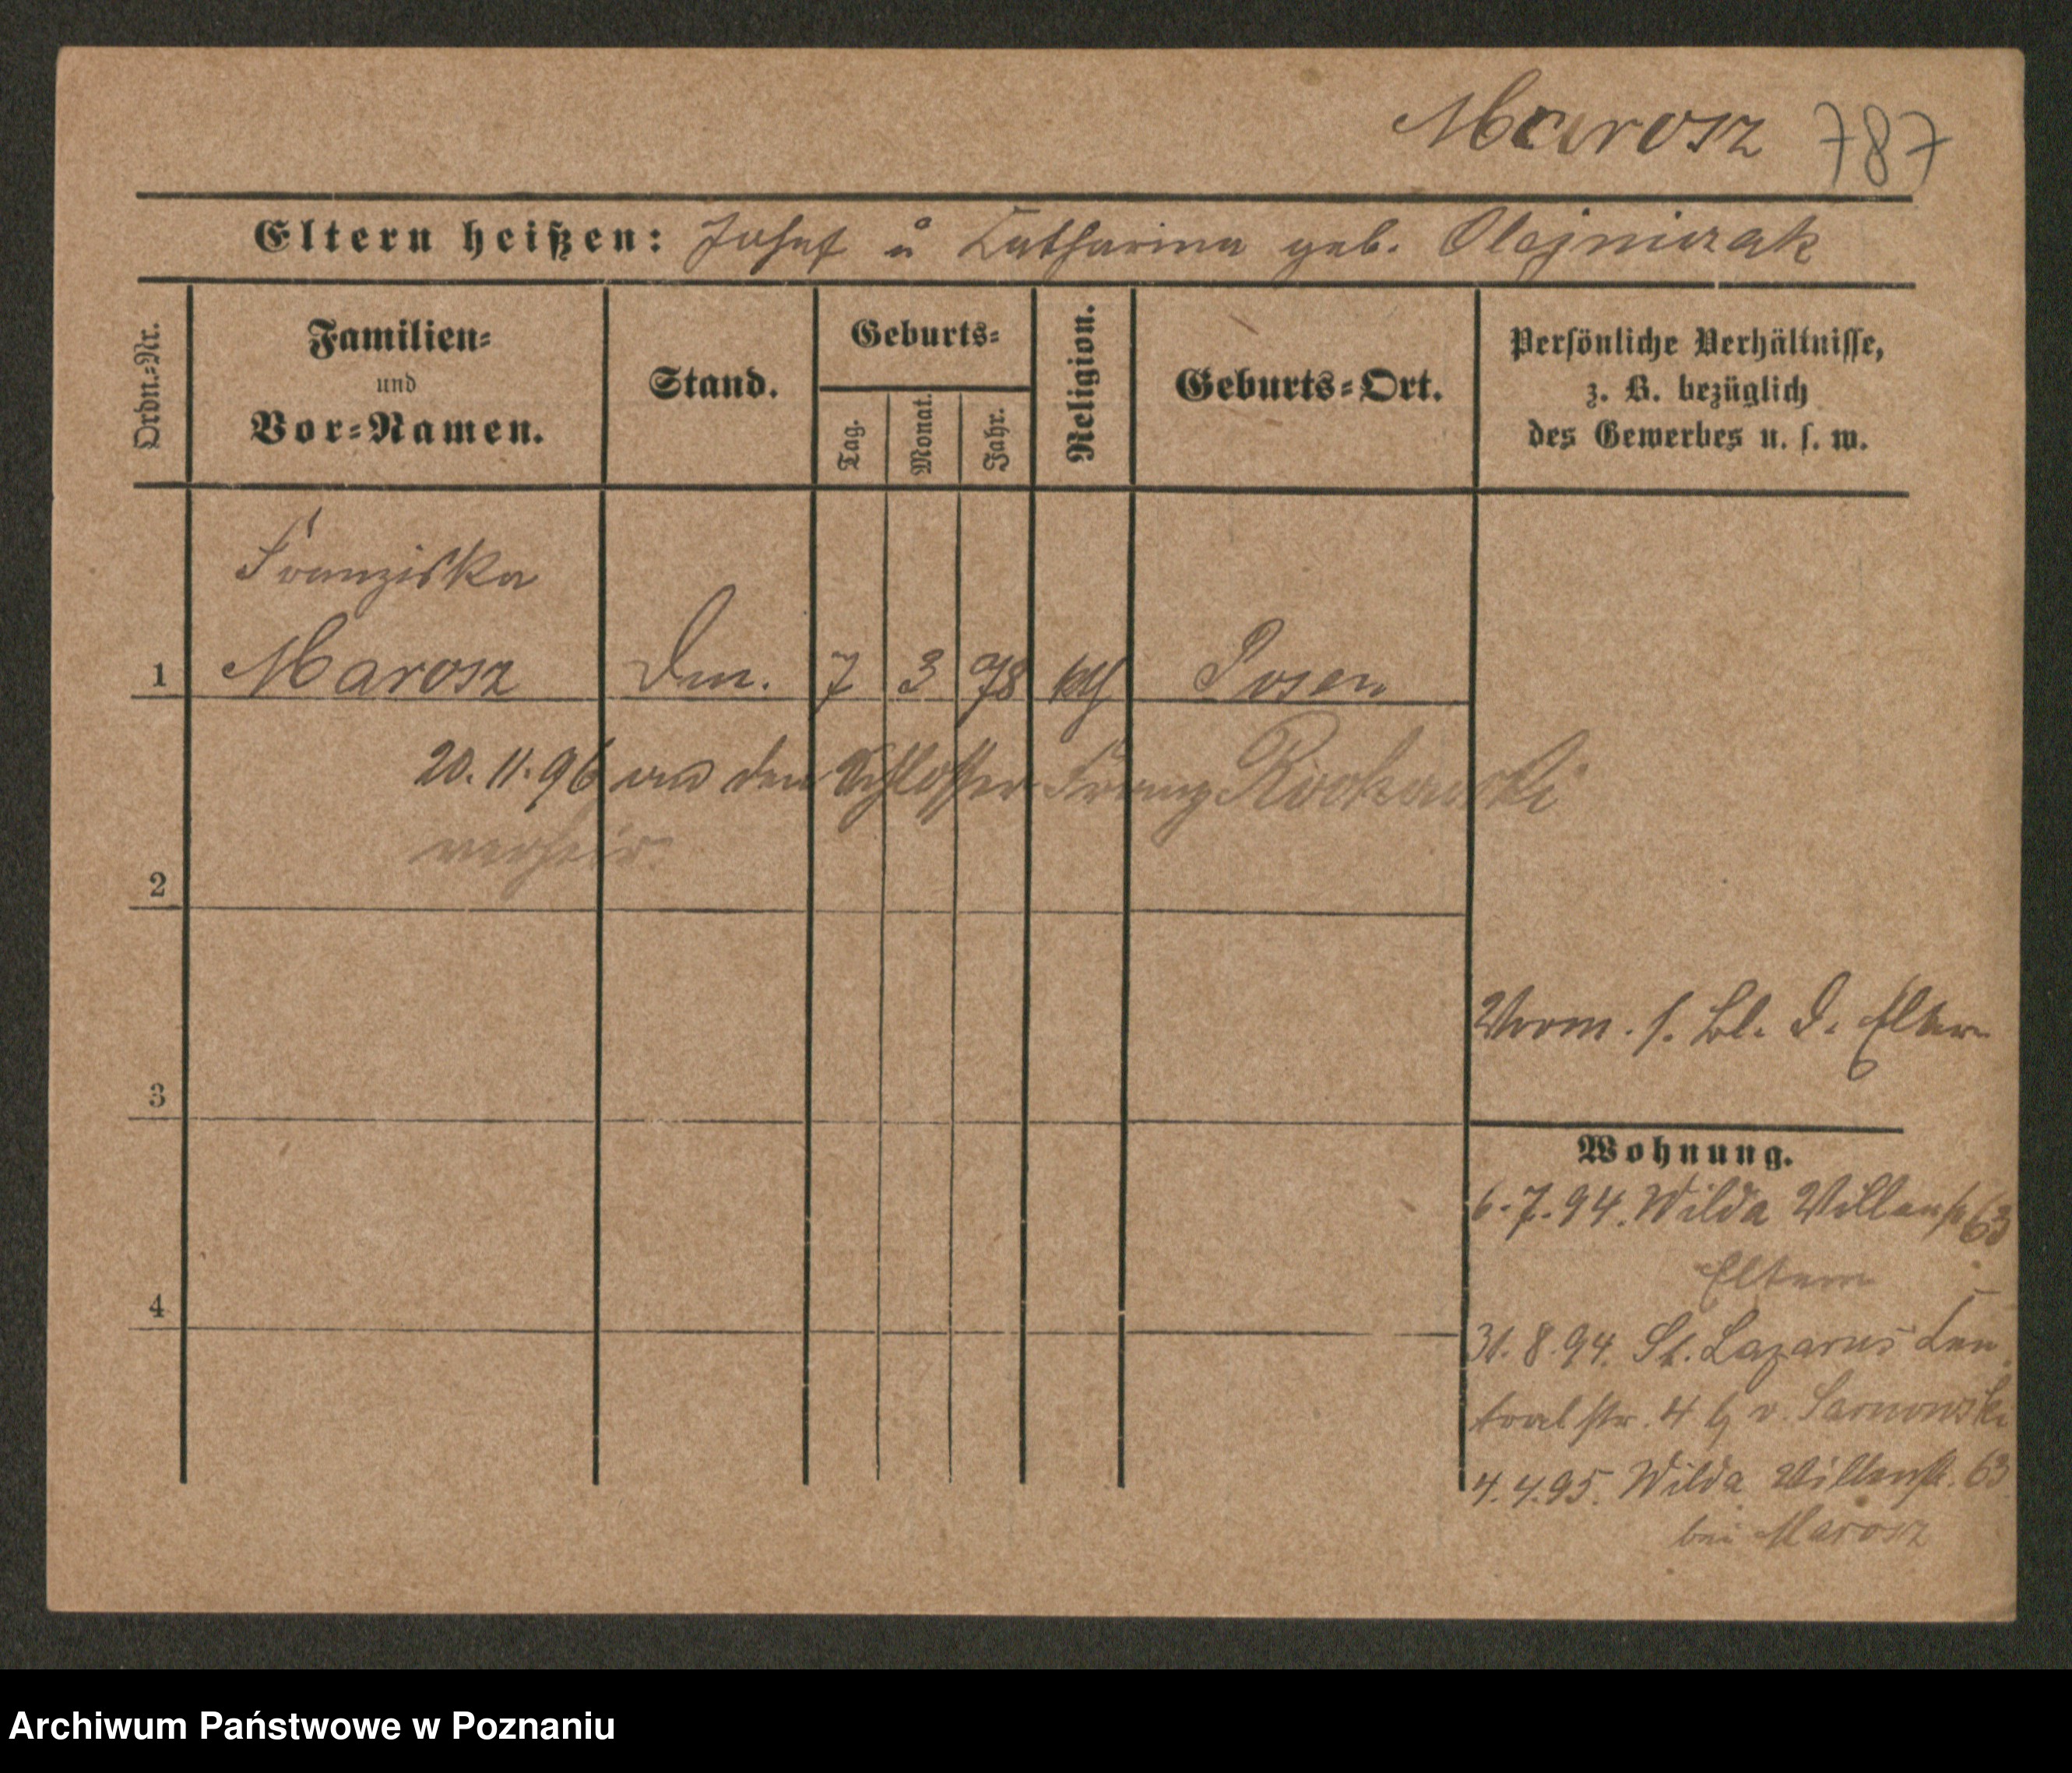 Marosz 787
Eltern heißen: Josef u Katharina geb. Olejniczak
Ordn.-Nr.
Familien-
und
Vor-Namen.
Stand.
Geburts-
Tag.
Monat.
Jahr.
Religion.
Geburts-Ort.
Persönliche Verhältnisse,
z. B. bezüglich
des Gewerbes u. s. w.
Franziska
1 Marosz 7 3 78 kth Posen
20. 11. 96 an den Schlosser Franz
verheir.
2
3
4
Vorm. s. Bl. d. Eltern
Wohnung.
6. 7. 94. Wilda Villenstr 63
Eltern
31. 8. 94. St. Lazarus Cen
tralstr. 4 b v. Sarnowski
4. 4. 95. Wilda Villenstr. 63
bei Marosz
Archiwum Państwowe w Poznaniu